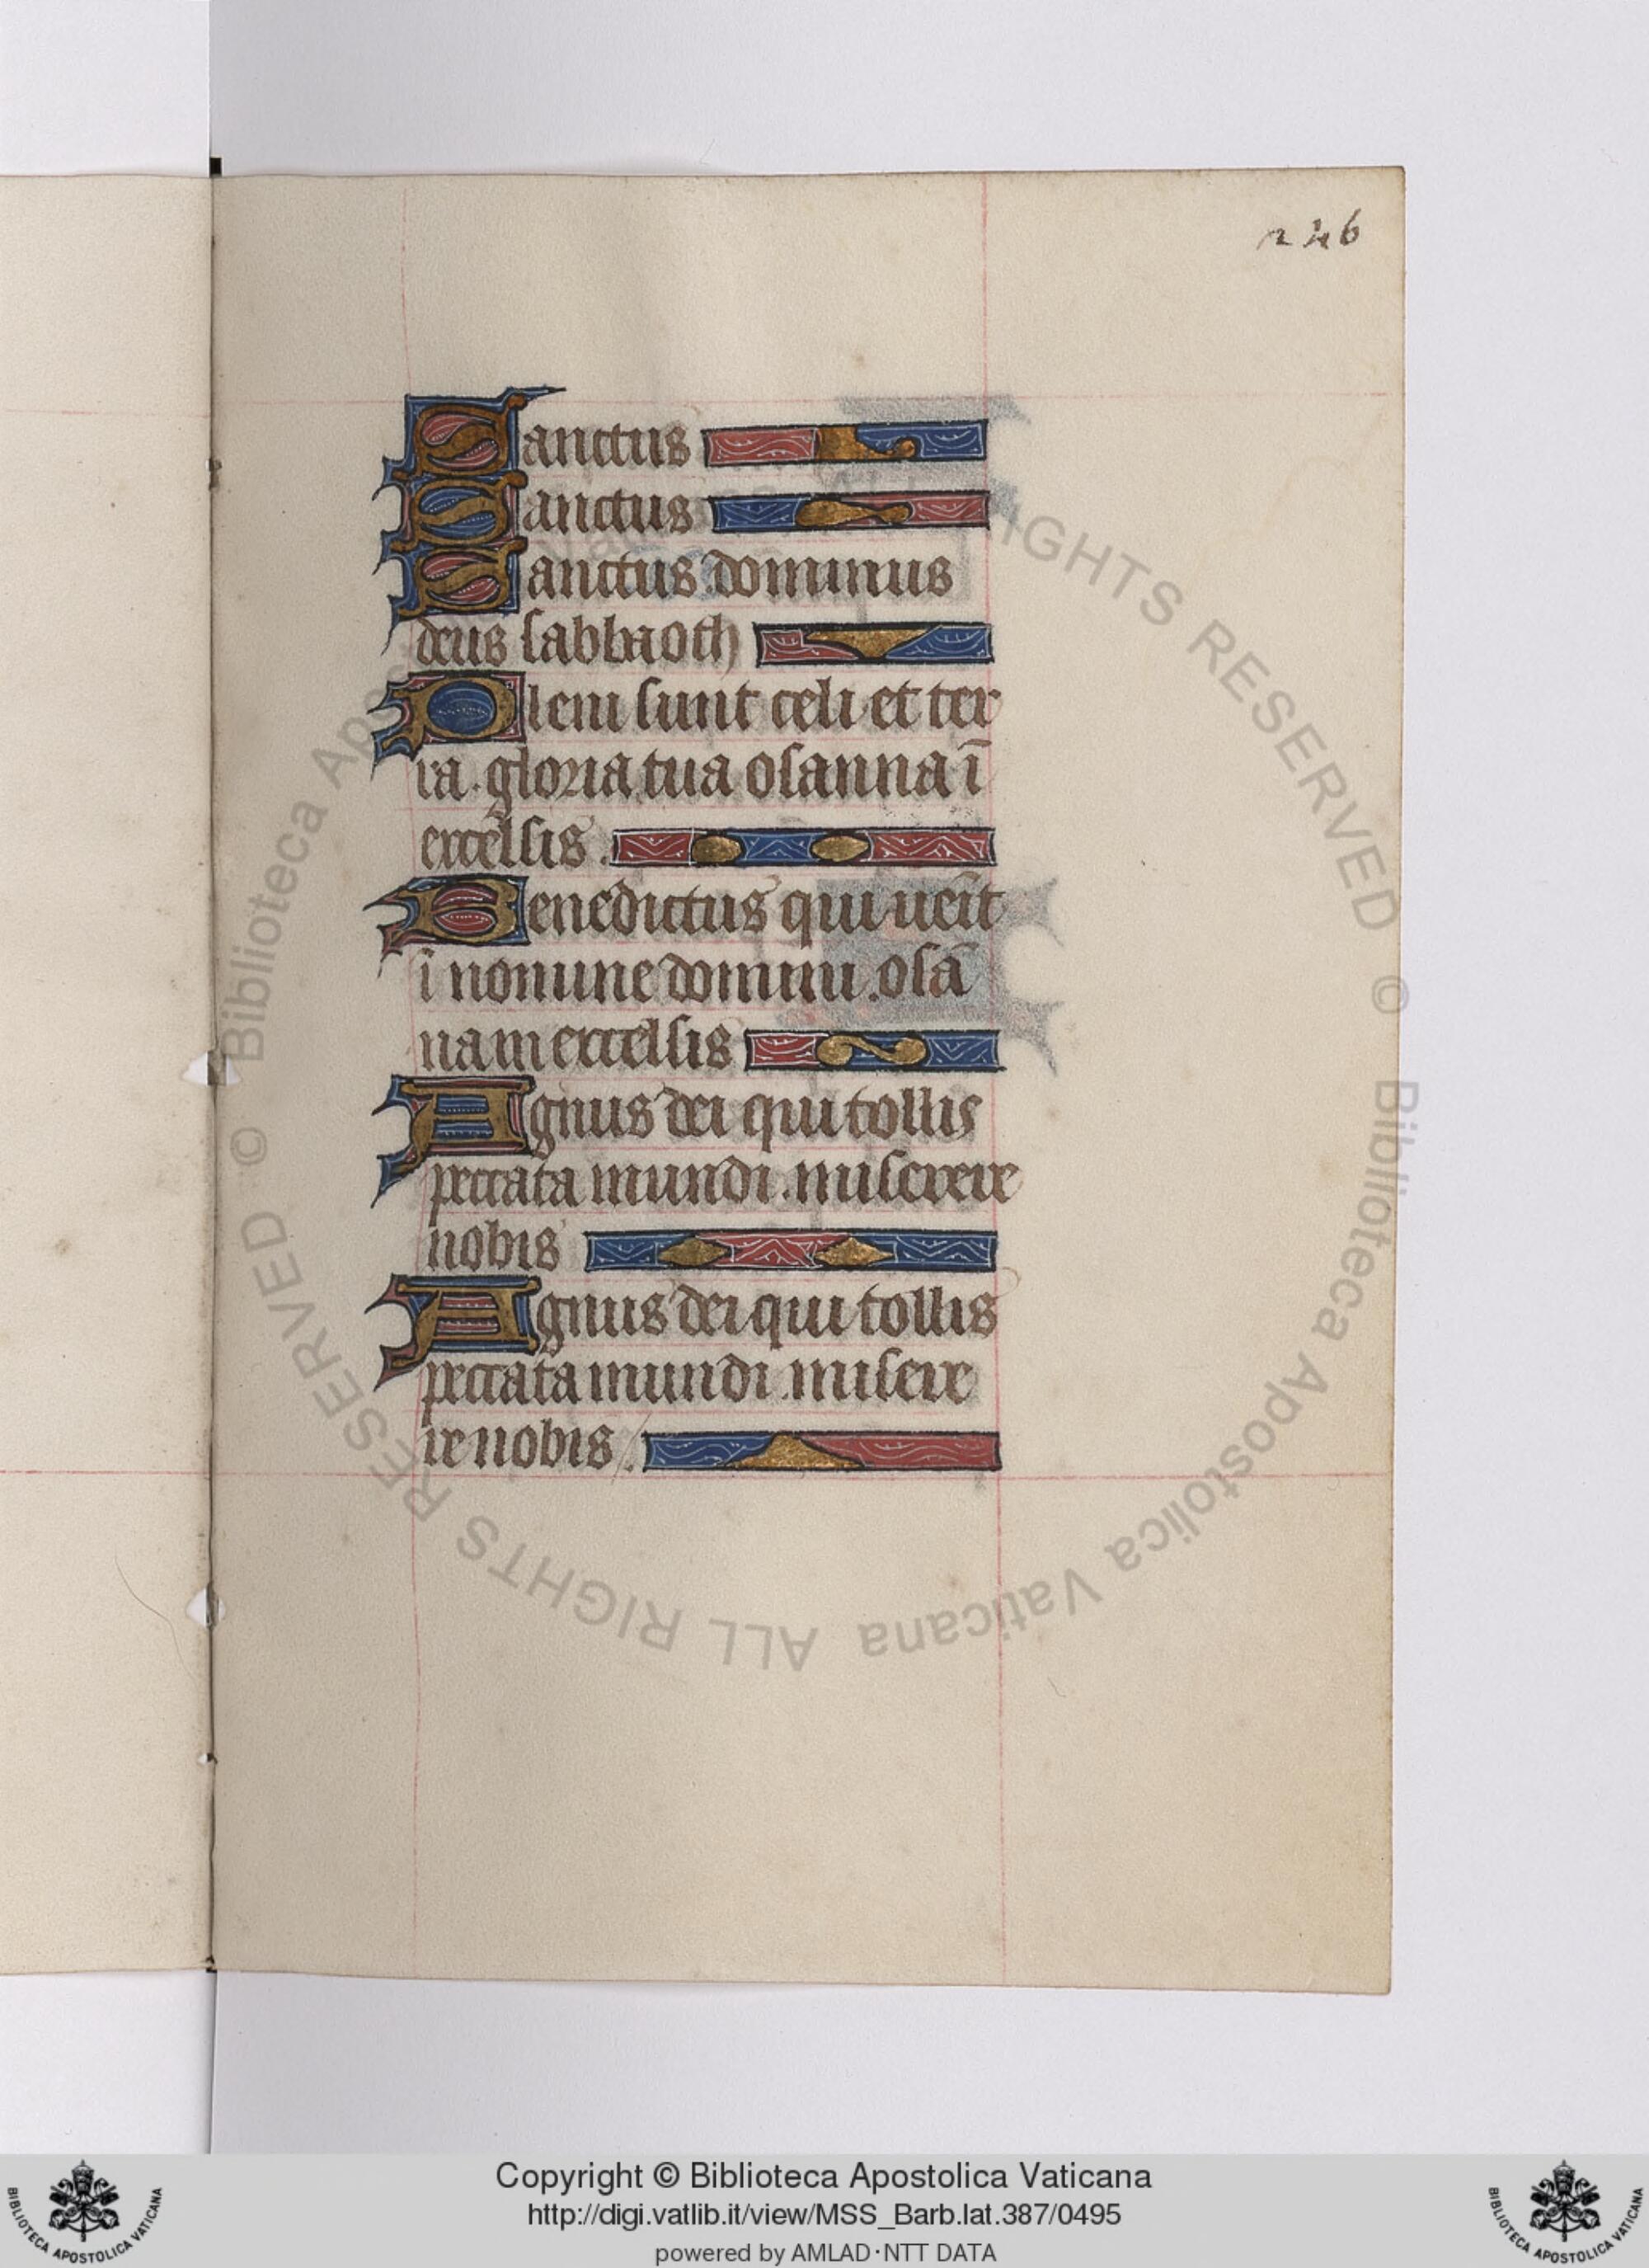 246
Sanctus
Sanctus
Sanctus. dominus
deus sabbaoth
Pleni sunt celi et ter
ra. gloria tua osanna ī
excelsis.
Benedictus qui ueīt
ī nomine domini. osā
nam excelsis
Agnus dei qui tollis
peccata mundi. miserere
nobis
Agnus dei qui tollis
peccata mundi. misere
re nobis.
© Biblioteca Apostolica Vaticana ALL RIGHTS RESERVED © Biblioteca Apostolica Vaticana ALL RIGHTS RESERVED
Copyright © Biblioteca Apostolica Vaticana
http://digi.vatlib.it/view/MSS_Barb.lat.387/0495
powered by AMLAD·NTT DATA
BIBLIOTECA APOSTOLICA VATICANA
BIBLIOTECA APOSTOLICA VATICANA